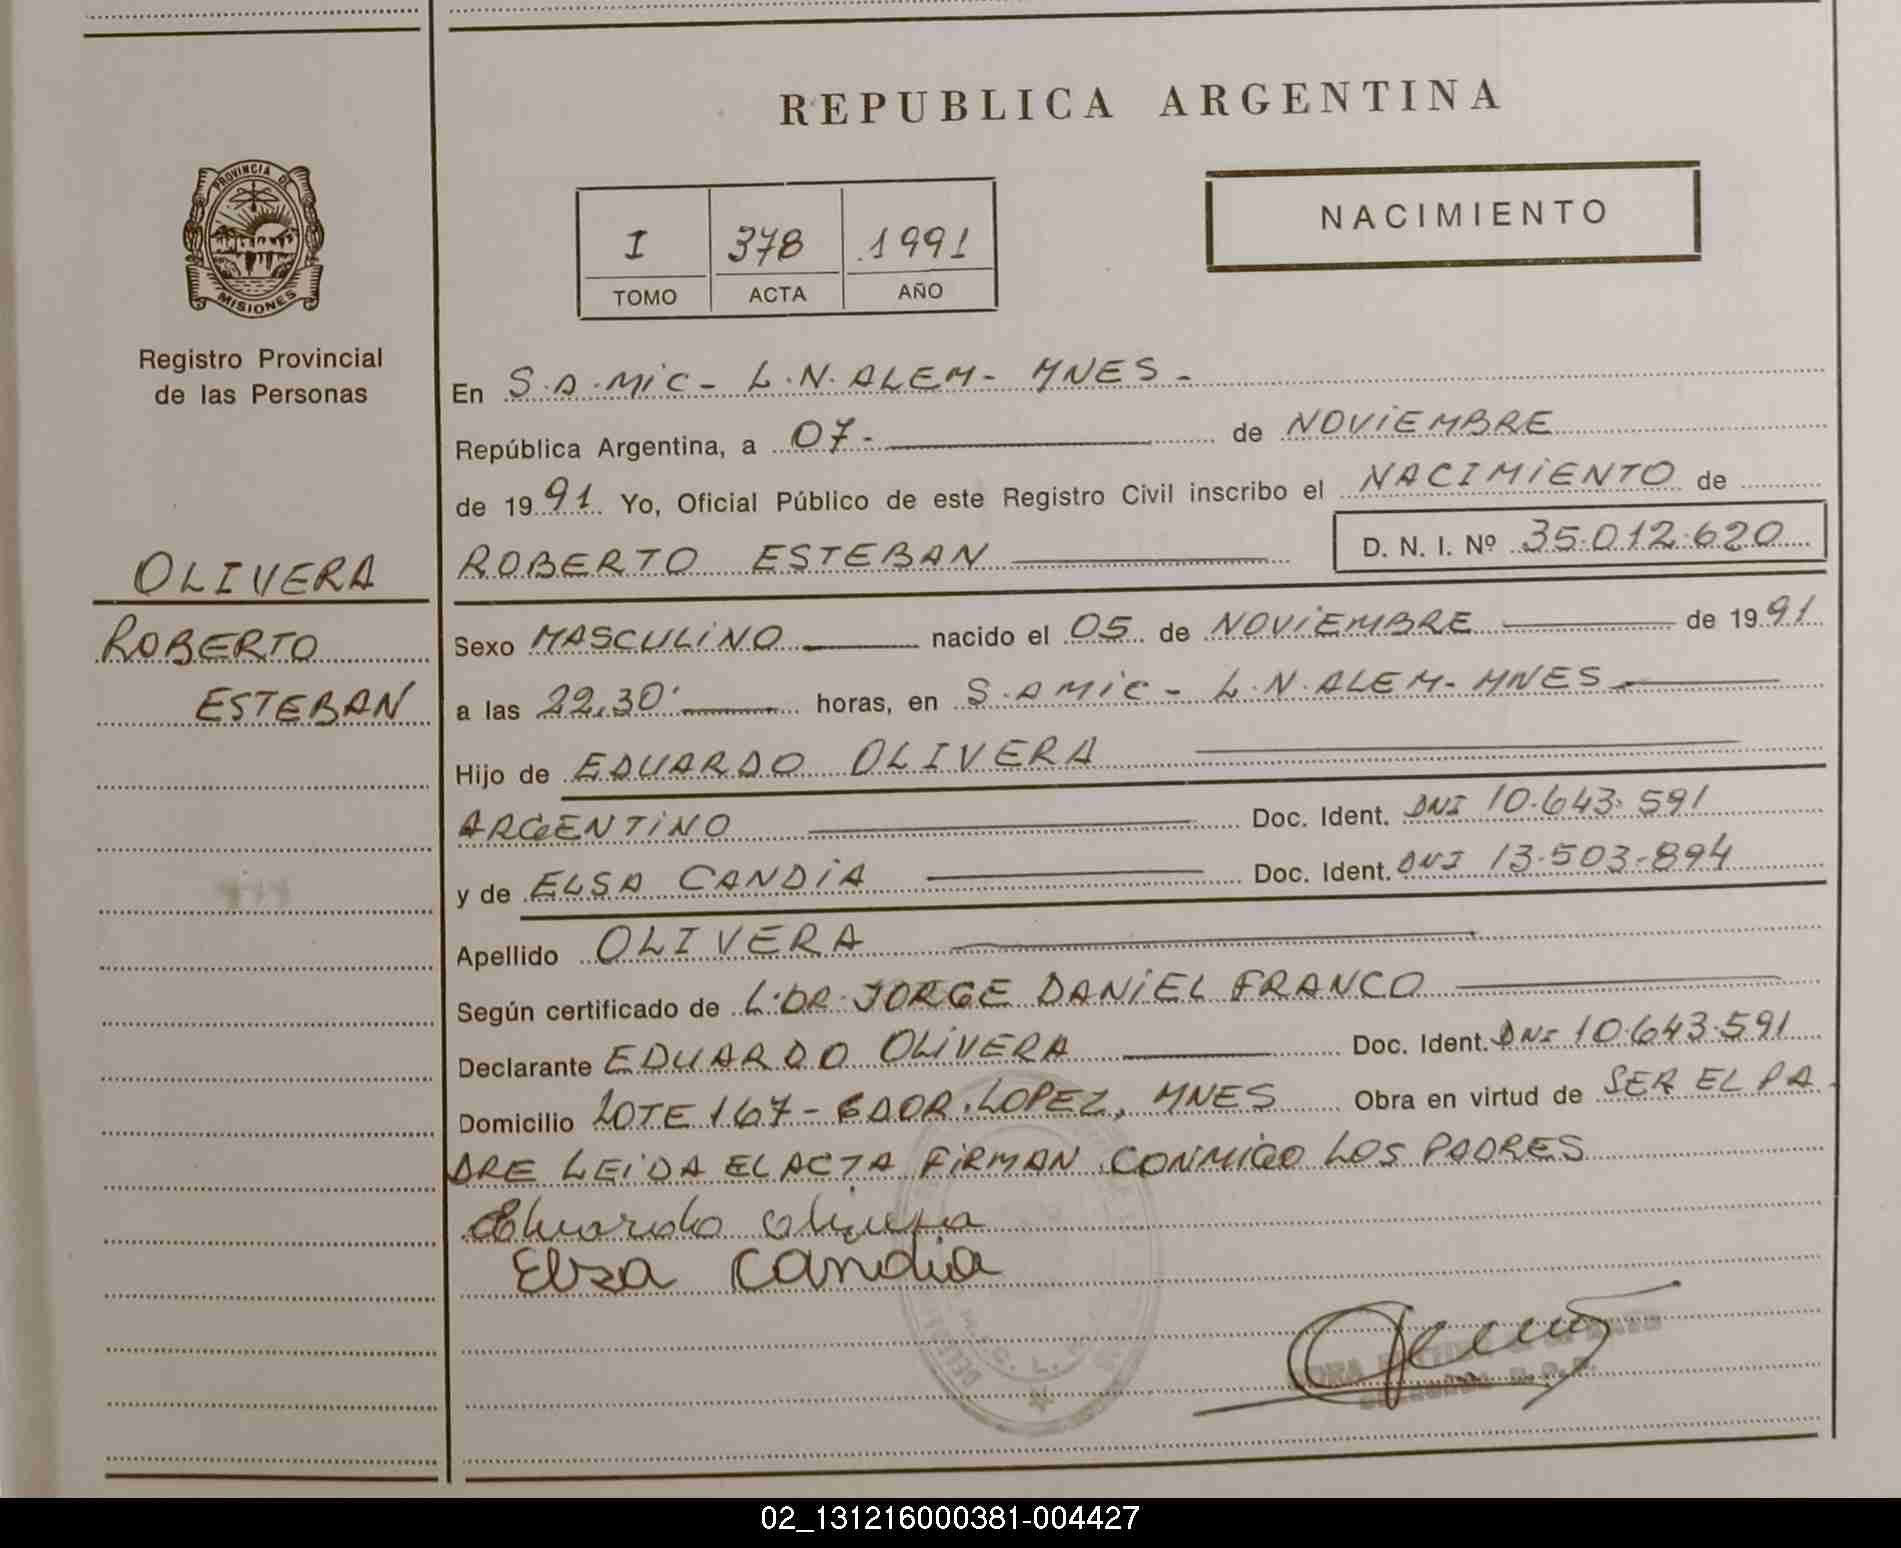 REPUBLICA ARGENTINA
PROVINCIA DE
MISIONES
Registro Provincial
de las Personas
NACIMIENTO
I 378 1991
TOMO ACTA AÑO
En S.A.MIC- L.N.ALEM- MNES-
República Argentina, a 07- de NOVIEMBRE
de 1991 Yo, Oficial Público de este Registro Civil inscribo el NACIMIENTO de
ROBERTO ESTEBAN D. N. I. Nº 35.012.620
OLIVERA
ROBERTO
ESTEBAN
Sexo MASCULINO nacido el 05 de NOVIEMBRE de 1991
a las 22,30' horas, en S.A MIC- L.N.ALEM-MNES
Hijo de EDUARDO OLIVERA
ARGENTINO Doc. Ident. DNI 10.643.591
y de ELSA CANDIA Doc. Ident. DNI 13.503.894
Apellido OLIVERA
Según certificado de L.DR.JORGE DANIEL FRANCO
Declarante EDUARDO OLIVERA Doc. Ident. DNI 10.643.591
Domicilio LOTE 167- GDOR.LOPEZ, MNES Obra en virtud de SER EL PA
DRE LEIDA EL ACTA FIRMAN CONMIGO LOS PADRES
Eduardo Olivera
Elsa Candia
02_131216000381-004427